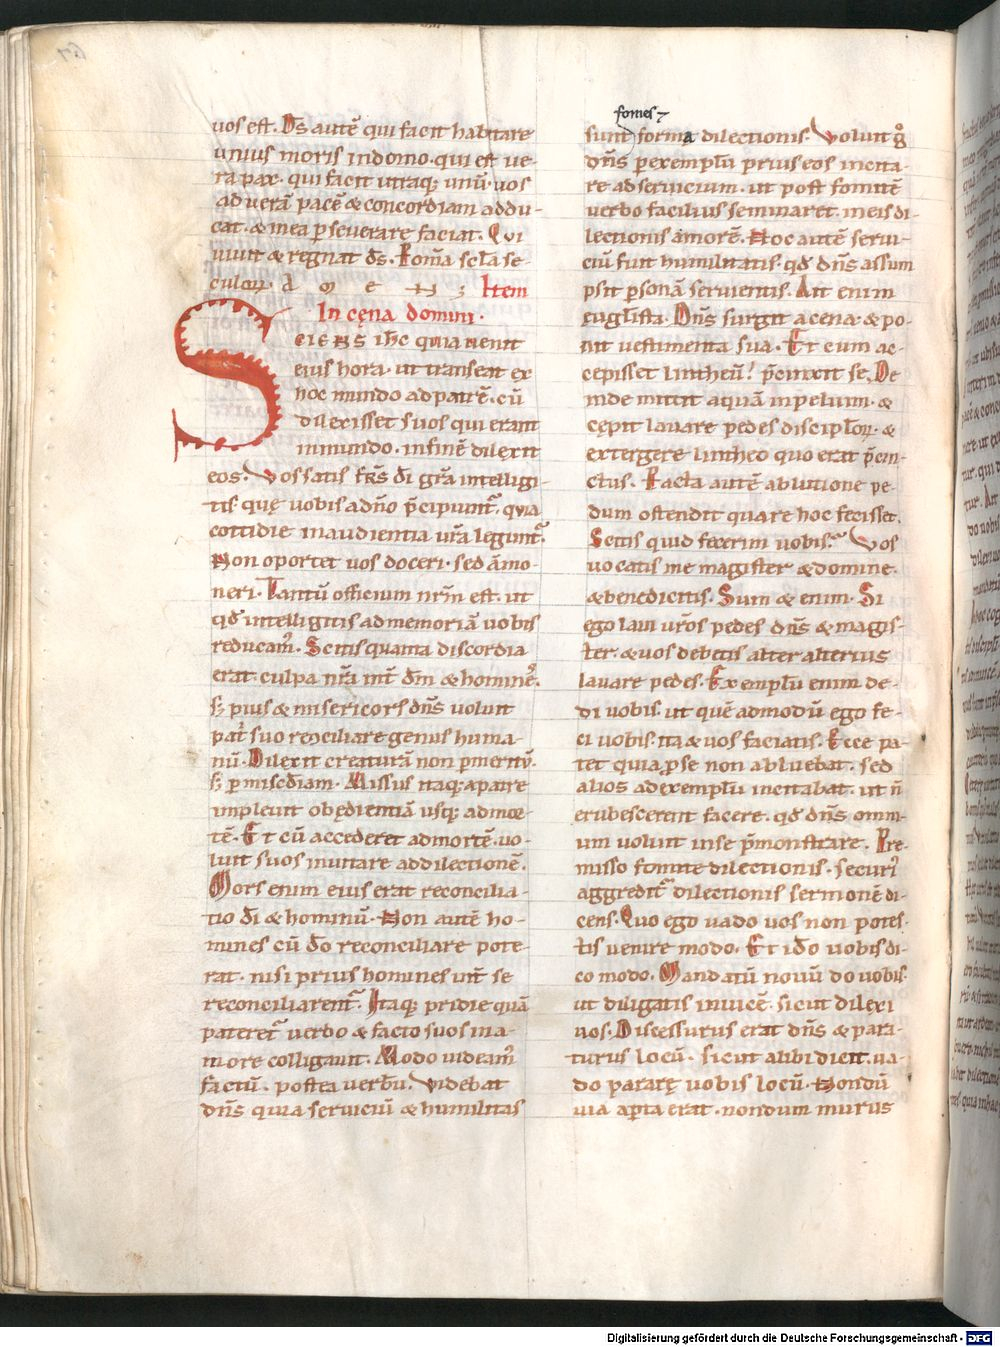 uos est. Ds autē qui facit habitare
unius moris indomo. qui est ue-
ra pax. qui facit utraq; unū. uos
ad uerā pacē & concordiam addu-
cat. & mea pseuerare faciat. Qui
uiuit & regnat ds. P om̄a scl̄a se-
culoꝝ. a m e n ; Item
In cęna domini.
SCIENS ih̄c quia uenit
eius hora. ut transeat ex
hoc mundo ad patrē. cū
dilexisset suos qui erant
inmundo. infinē dilexit
eos. Vos satis frs̄ di gr̄a intelligi-
tis quę uobis adn̄o p̄cipiunt̄. quia
cottidie inaudientia ur̄a legunt̄.
Non oportet uos doceri. sed āmo-
neri. Tantū officium nr̄m est. ut
qd̄ intelligitis ad memoriā uobis
reducam̄. Scitis quanta discordia
erat. culpa nr̄a int̄ dm̄ & hominē.
s; pius & misericors dn̄s uoluit
pat̄ suo recńciliare genus huma-
nū. Dilexit creaturā non pmeritū.
s; p misc̄diam. Missus itaq; a patre
impleuit obędientiā usq; ad mor-
tē. Et cū accederet ad mortē. uo-
luit suos inuitare ad dilectionē.
Mors enim eius erat reconcilia-
tio di & hominū. Non autē ho-
mines cū do reconciliare pote-
rat. nisi prius homines int̄ se
reconciliarent̄. Itaq; pridie quā
pateret̄ uerbo & facto suos in a-
more colligauit. Modo uideam̄
factū. postea uerbū. Videbat
dn̄s quia seruiciū & humilitas
fomes
sunt forma dilectionis. Voluit g°
dn̄s p exemplū prius eos incita-
re ad seruicium. ut post fomitē
uerbo facilius seminaret. in eis di-
lectionis amorē. Hoc autē serui-
ciū fuit humilitatis. qd̄ dn̄s assum
psit psonā seruientis. Ait enim
euglista. Dn̄s surgit a cena. & po-
nit uestimenta sua. Et cum ac-
cepisset lintheū. p̄cinxit se. De
inde mittit aquā in peluim. &
cępit lauare pedes discipl̄oꝝ. &
extergere lintheo quo erat p̄cin-
ctus. Facta autē ablutione pe-
dum ostendit quare hoc fecisset.
Scitis quid fecerim uobis. Vos
uocatis me magister & domine.
& benedicitis. Sum & enim. Si
ego laui ur̄os pedes dn̄s & magis-
ter. & uos debetis alter alterius
lauare pedes. Exemplū enim de-
di uobis. ut quē admodū ego fe-
ci uobis. ita & uos faciatis. Ecce pa-
tet quia p se non abluebat. sed
alios ad exemplū incitabat. ut n̄
erubescerent facere. qd̄ dn̄s omni-
um uoluit in se p̄monstrare. Pre-
misso fomite dilectionis. securi
aggredit̄ dilectionis sermonē di-
cens. Quo ego uado uos non potes-
tis uenire modo. Et ido uobis di-
co modo. Mandatū nouū do uobis.
ut diligatis inuicē. sicut dilexi
uos. Discessurus erat dn̄s & para-
turus locū. sicut alibi dicit. ua-
do pararę uobis locū. Nondū
uia apta erat. nondum murus
Digitalisierung gefördert durch die Deutsche Forschungsgemeinschaft - DFG